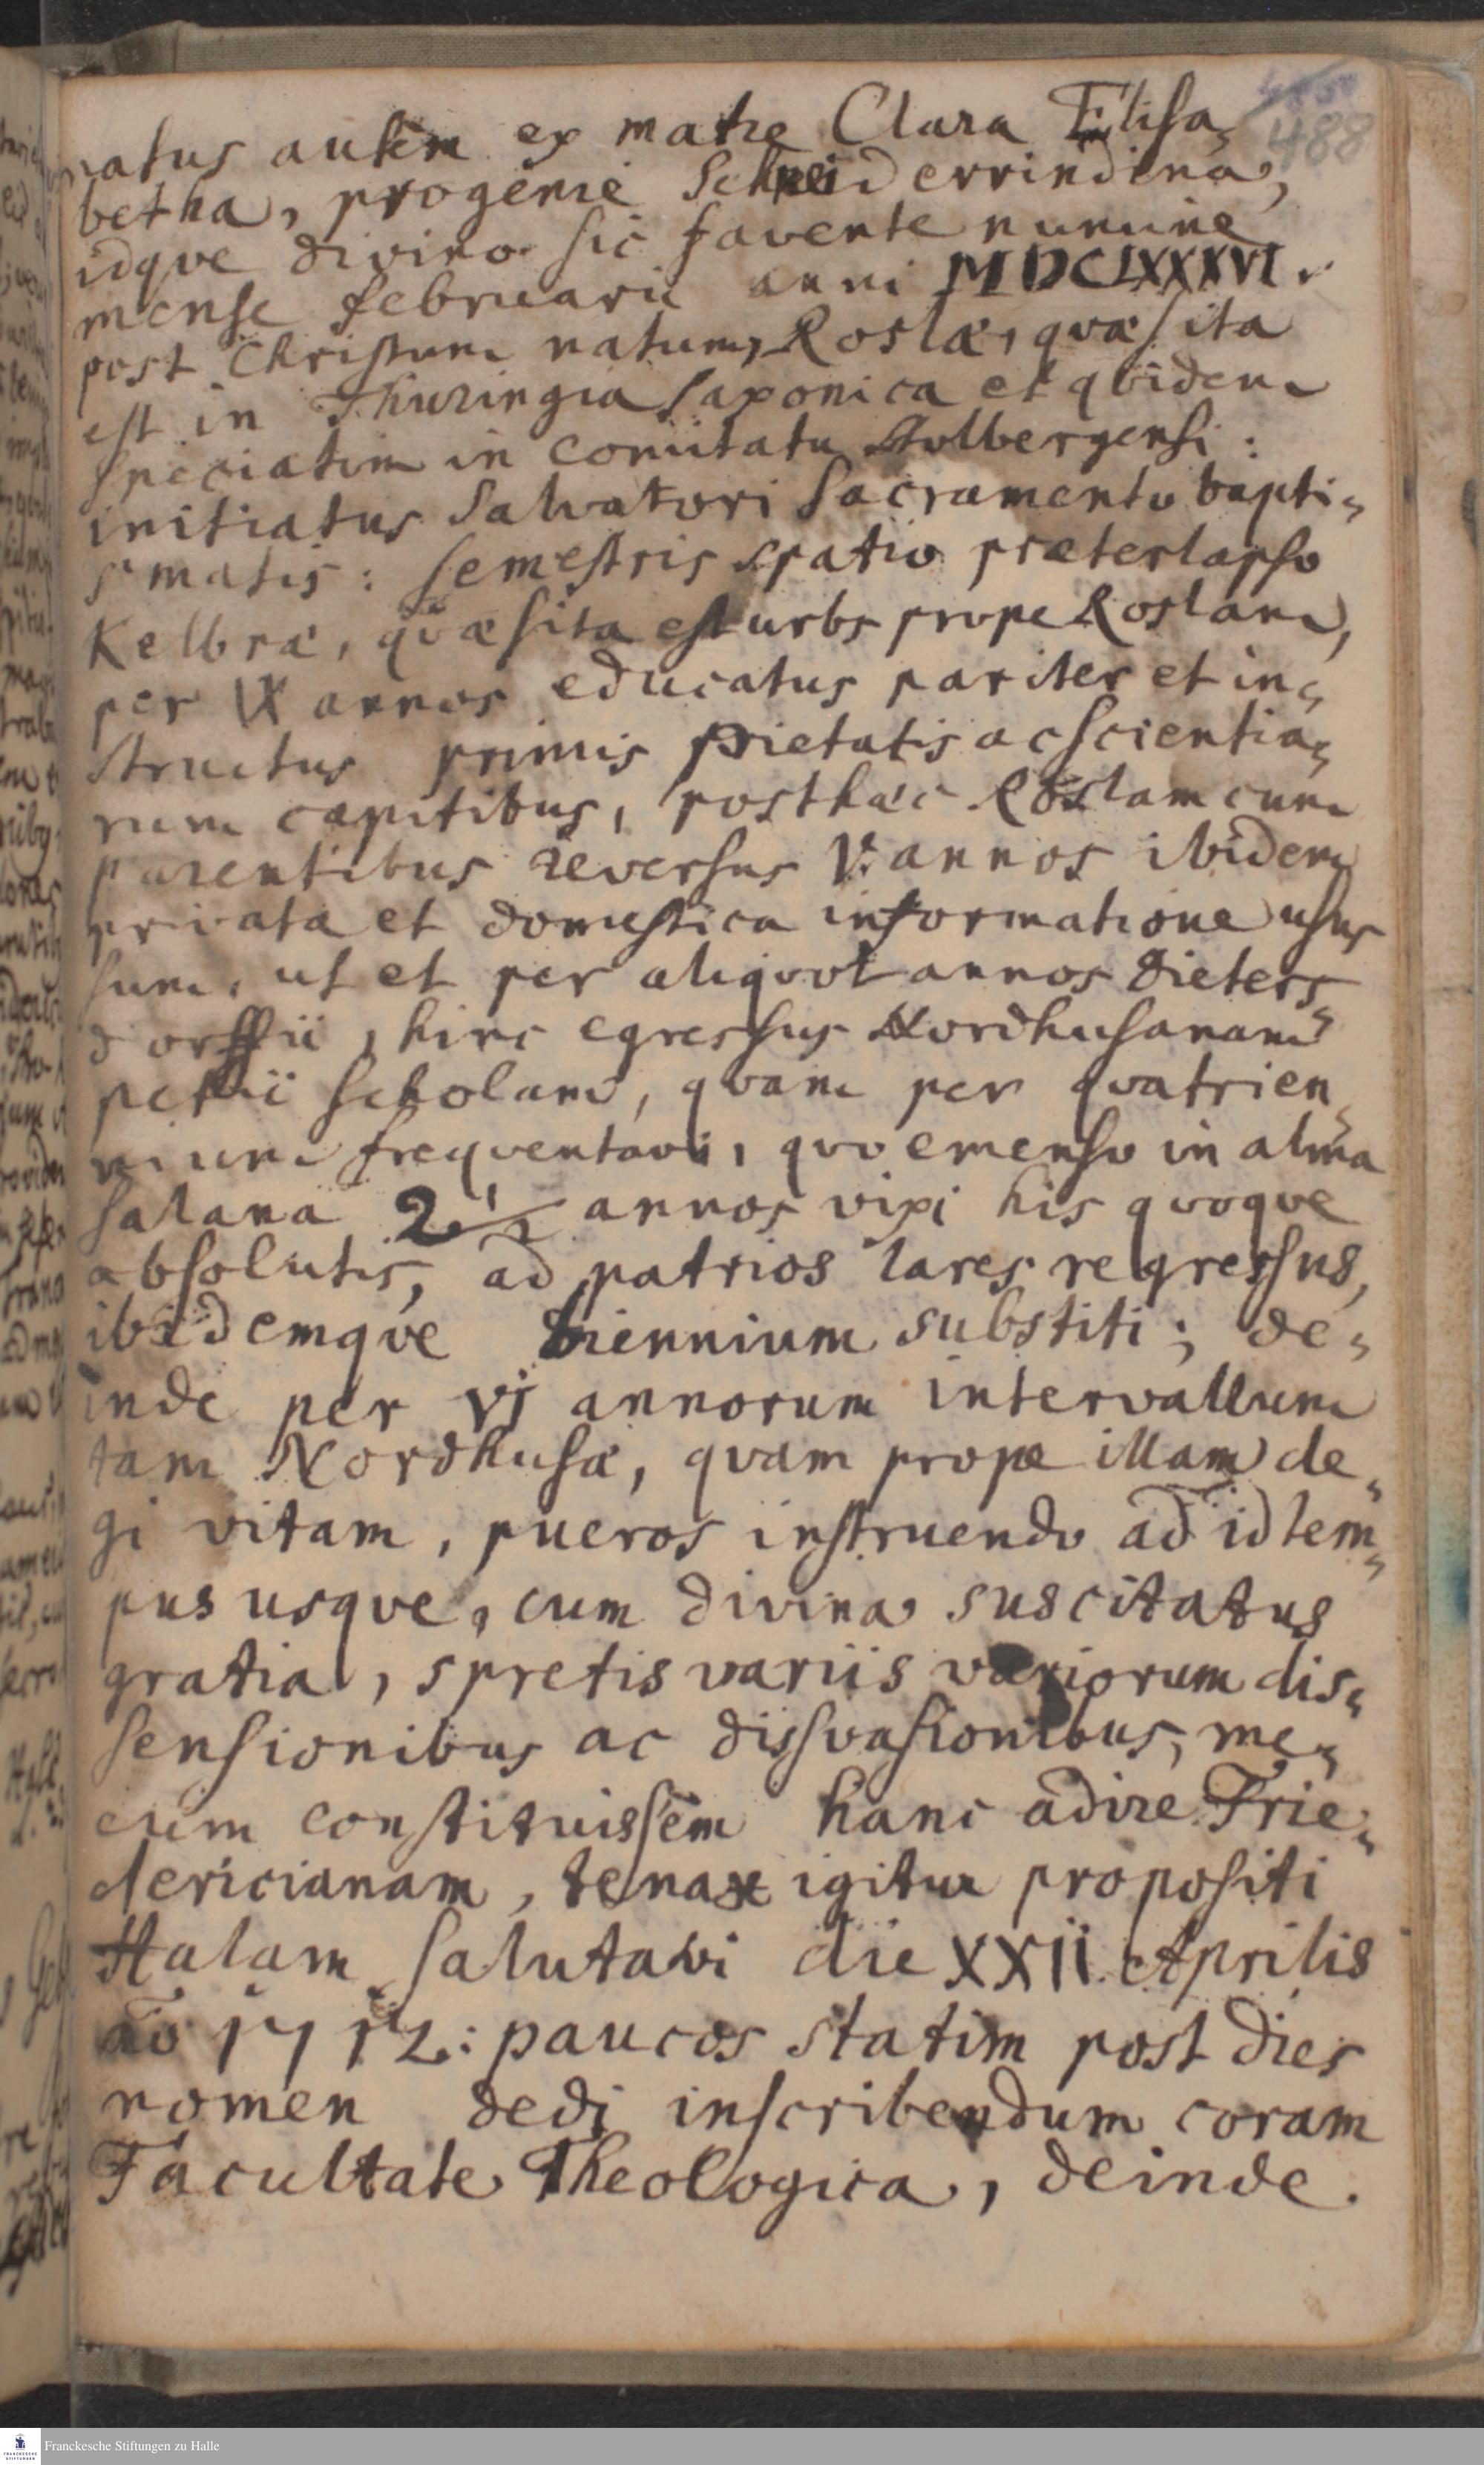 488
natus autem ex matre Clara Elisa-
betha, progenie Schneiderrindena,
idqve divino sic favente numine
mense februarii anni MDCLXXXVI.
post Christum natum, Roslæ, qvæ sita
est in Thuringia Saxonica et qvidem
speciatim in comitatu Stolbergensi:
initiatus Salvatori Sacramento bapti-
smatis: semestris spatio præterlapso
Kelbræ, qvæ sita est urbs prope Roslam,
per IX annos educatus pariter et in-
structus primis pietatis ac scientia-
rum capitibus, posthæc Roslam cum
parentibus reversus V. annos ibidem
privata et domestica informatione usus
sum, ut et per aliqvot annos Dieters-
dorffii, hinc egressus Nordhusanam
petii scholam, qvam per qvatrien-
nium freqventavi, qvo emenso in alma
Salana 2 1/2 annos vixi his qvoqve
absolutis, ad patrios lares regressus,
ibidemqve biennium substiti; de-
inde per VI annorum intervallum
tam Nordhusæ, qvam prope illam de-
gi vitam, pueros instruendo ad id tem-
pus usqve, cum divina suscitatus
gratia, spretis variis variorum dis-
sensionibus ac dissvasionibus, me-
cum constituissem hanc adire Frie-
dericianam, tenax igitur propositi
Halam salutavi die XXII. Aprilis
ao 1712: paucos statim post dies
nomen dedi inscribendum coram
Facultate Theologica, deinde.
FRANCKESCHE
STIFTUNGEN
Franckesche Stiftungen zu Halle